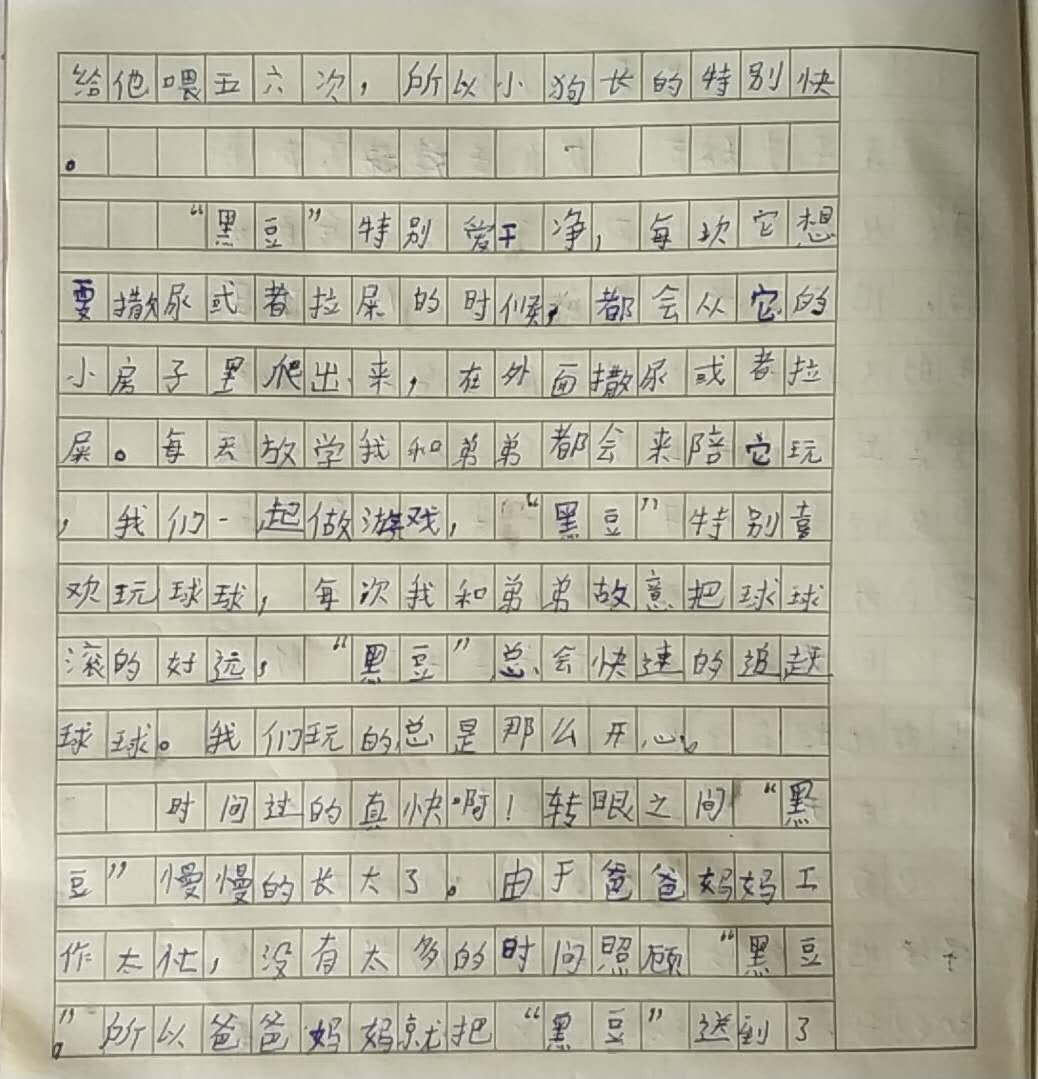 给他喂五六次，所以小狗长的特别快
。
“黑豆”特别爱干净，每次它想
要撒尿或者拉屎的时候，都会从它的
小房子里爬出来，在外面撒尿或者拉
屎。每天放学我和弟弟都会来陪它玩
，我们一起做游戏，“黑豆”特别喜
欢玩球球，每次我和弟弟故意把球球
滚的好远，“黑豆”总会快速的追赶
球球。我们玩的总是那么开心。
时间过的真快啊！转眼之间“黑
豆”慢慢的长大了。由于爸爸妈妈工
作太忙，没有太多的时间照顾“黑豆
”，所以爸爸妈妈就把“黑豆”送到了